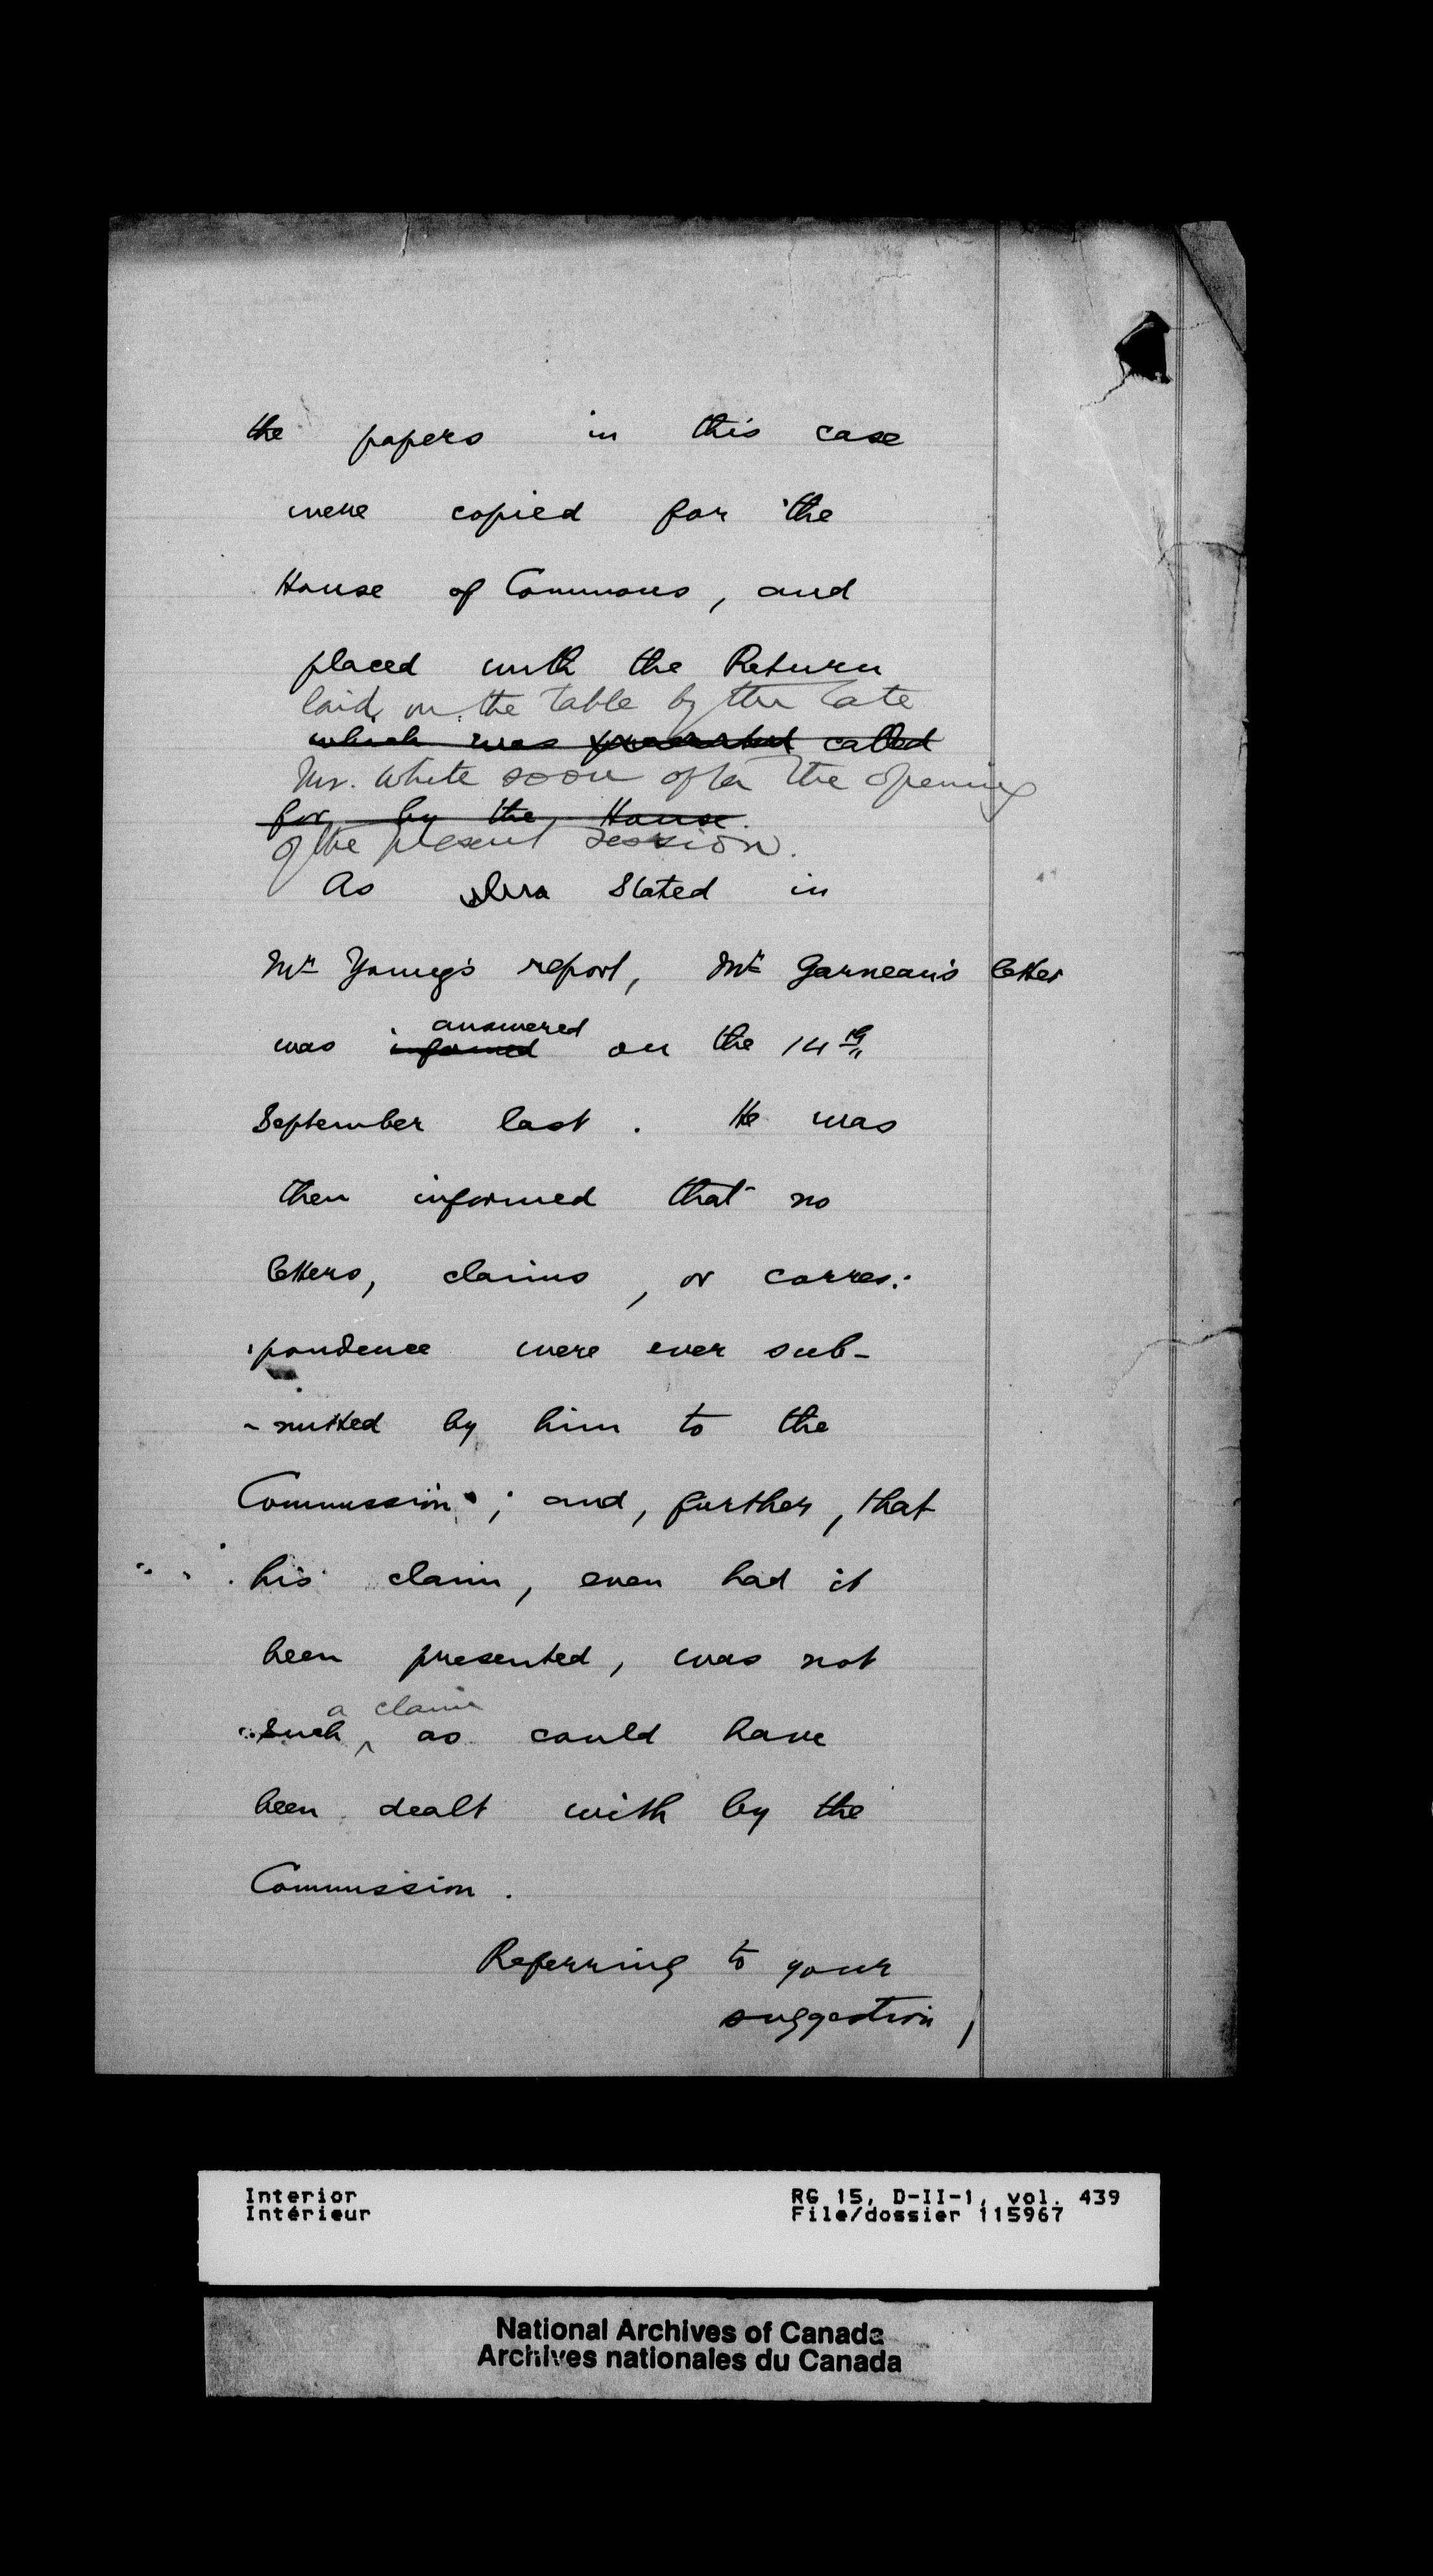 the papers in this case
were copied for the
House of Commons, and
placed with the Return
laid on the table by the late
which was presented called
Mr. White soon after the opening
for by the House.
of the present Session.
As stated in
Mr Young's report, Mr Garneau's letter
answered
was informed on the 14th
September last. He was
then informed that no
letters, claims, or corres-
pondence were ever sub-
-mitted by him to the
Commission; and, further, that
his claim, even had it
been presented, was not
a claim
such ^ as could have
been dealt with by the
Commission.
Referring to your
suggestion,
Interior
Intérieur
RG 15, D-II-1, vol. 439
File/dossier 115967
National Archives of Canada
Archives nationales du Canada